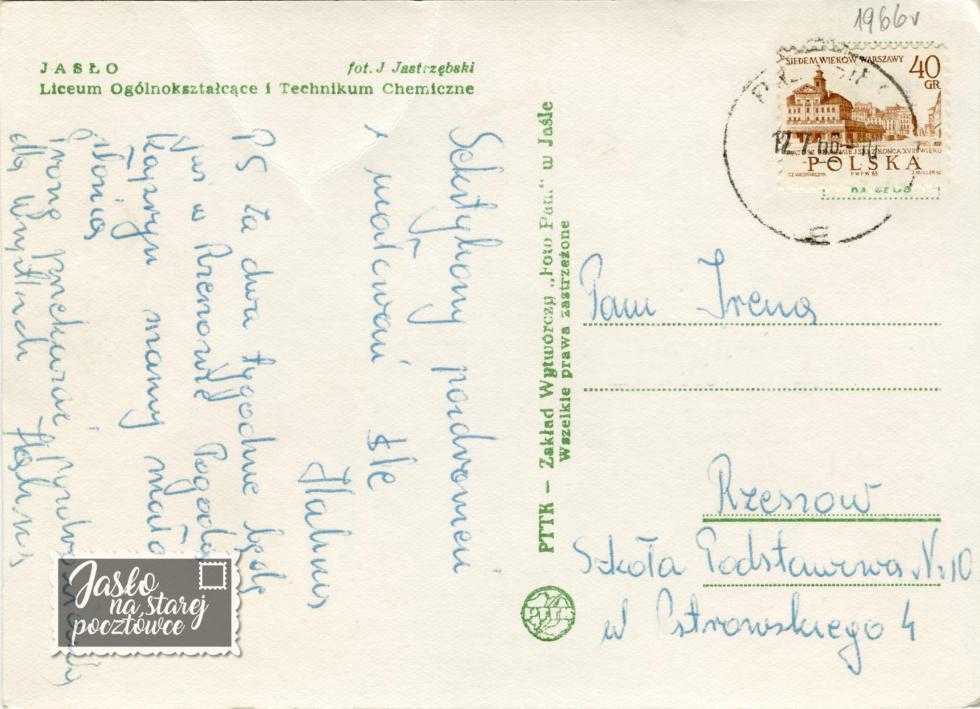 1966v
JASŁO fot. J Jastrzębski
Liceum Ogólnokształcące i Technikum Chemiczne
SIEDEM WIEKÓW WARSZAWY
40
GR
12.7.66
POLSKA
Serdeczny pozdrowień
i ucałowań śle
Halina
PS Za dwa tygodnie będę
już w Rzeszowie Pogody
Każdym mamy mało
słońca
Proszę przekazać
dla Wszystkich Halina
PTTK – Zakład Wytwórczy „Foto Pam.” w Jaśle
Wszelkie prawa zastrzeżone
PTTK
Pani Irena
Rzeszow
Szkoła Podstawowa Nr 10
ul Ostrowskiego 4
Jasło
na starej
pocztówce